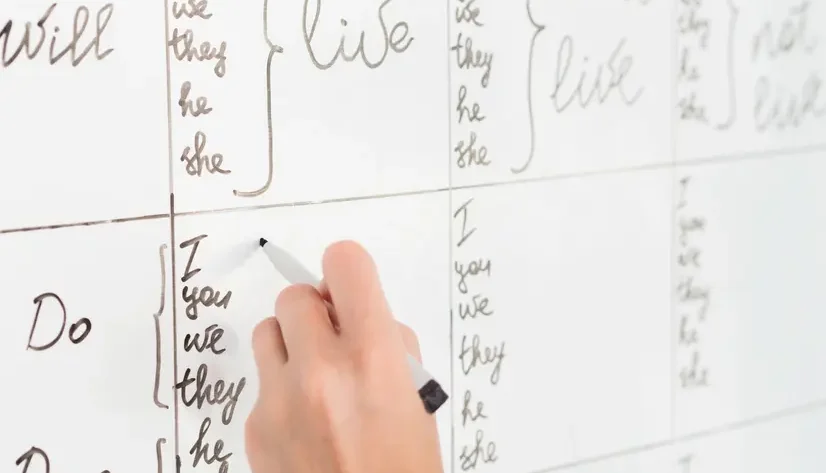 Will
we
they
he
she
live
we
they
he
she
live
they
he
she
not
live
Do
I
you
we
they
he
I
you
we
they
he
she
I
you
we
they
he
she